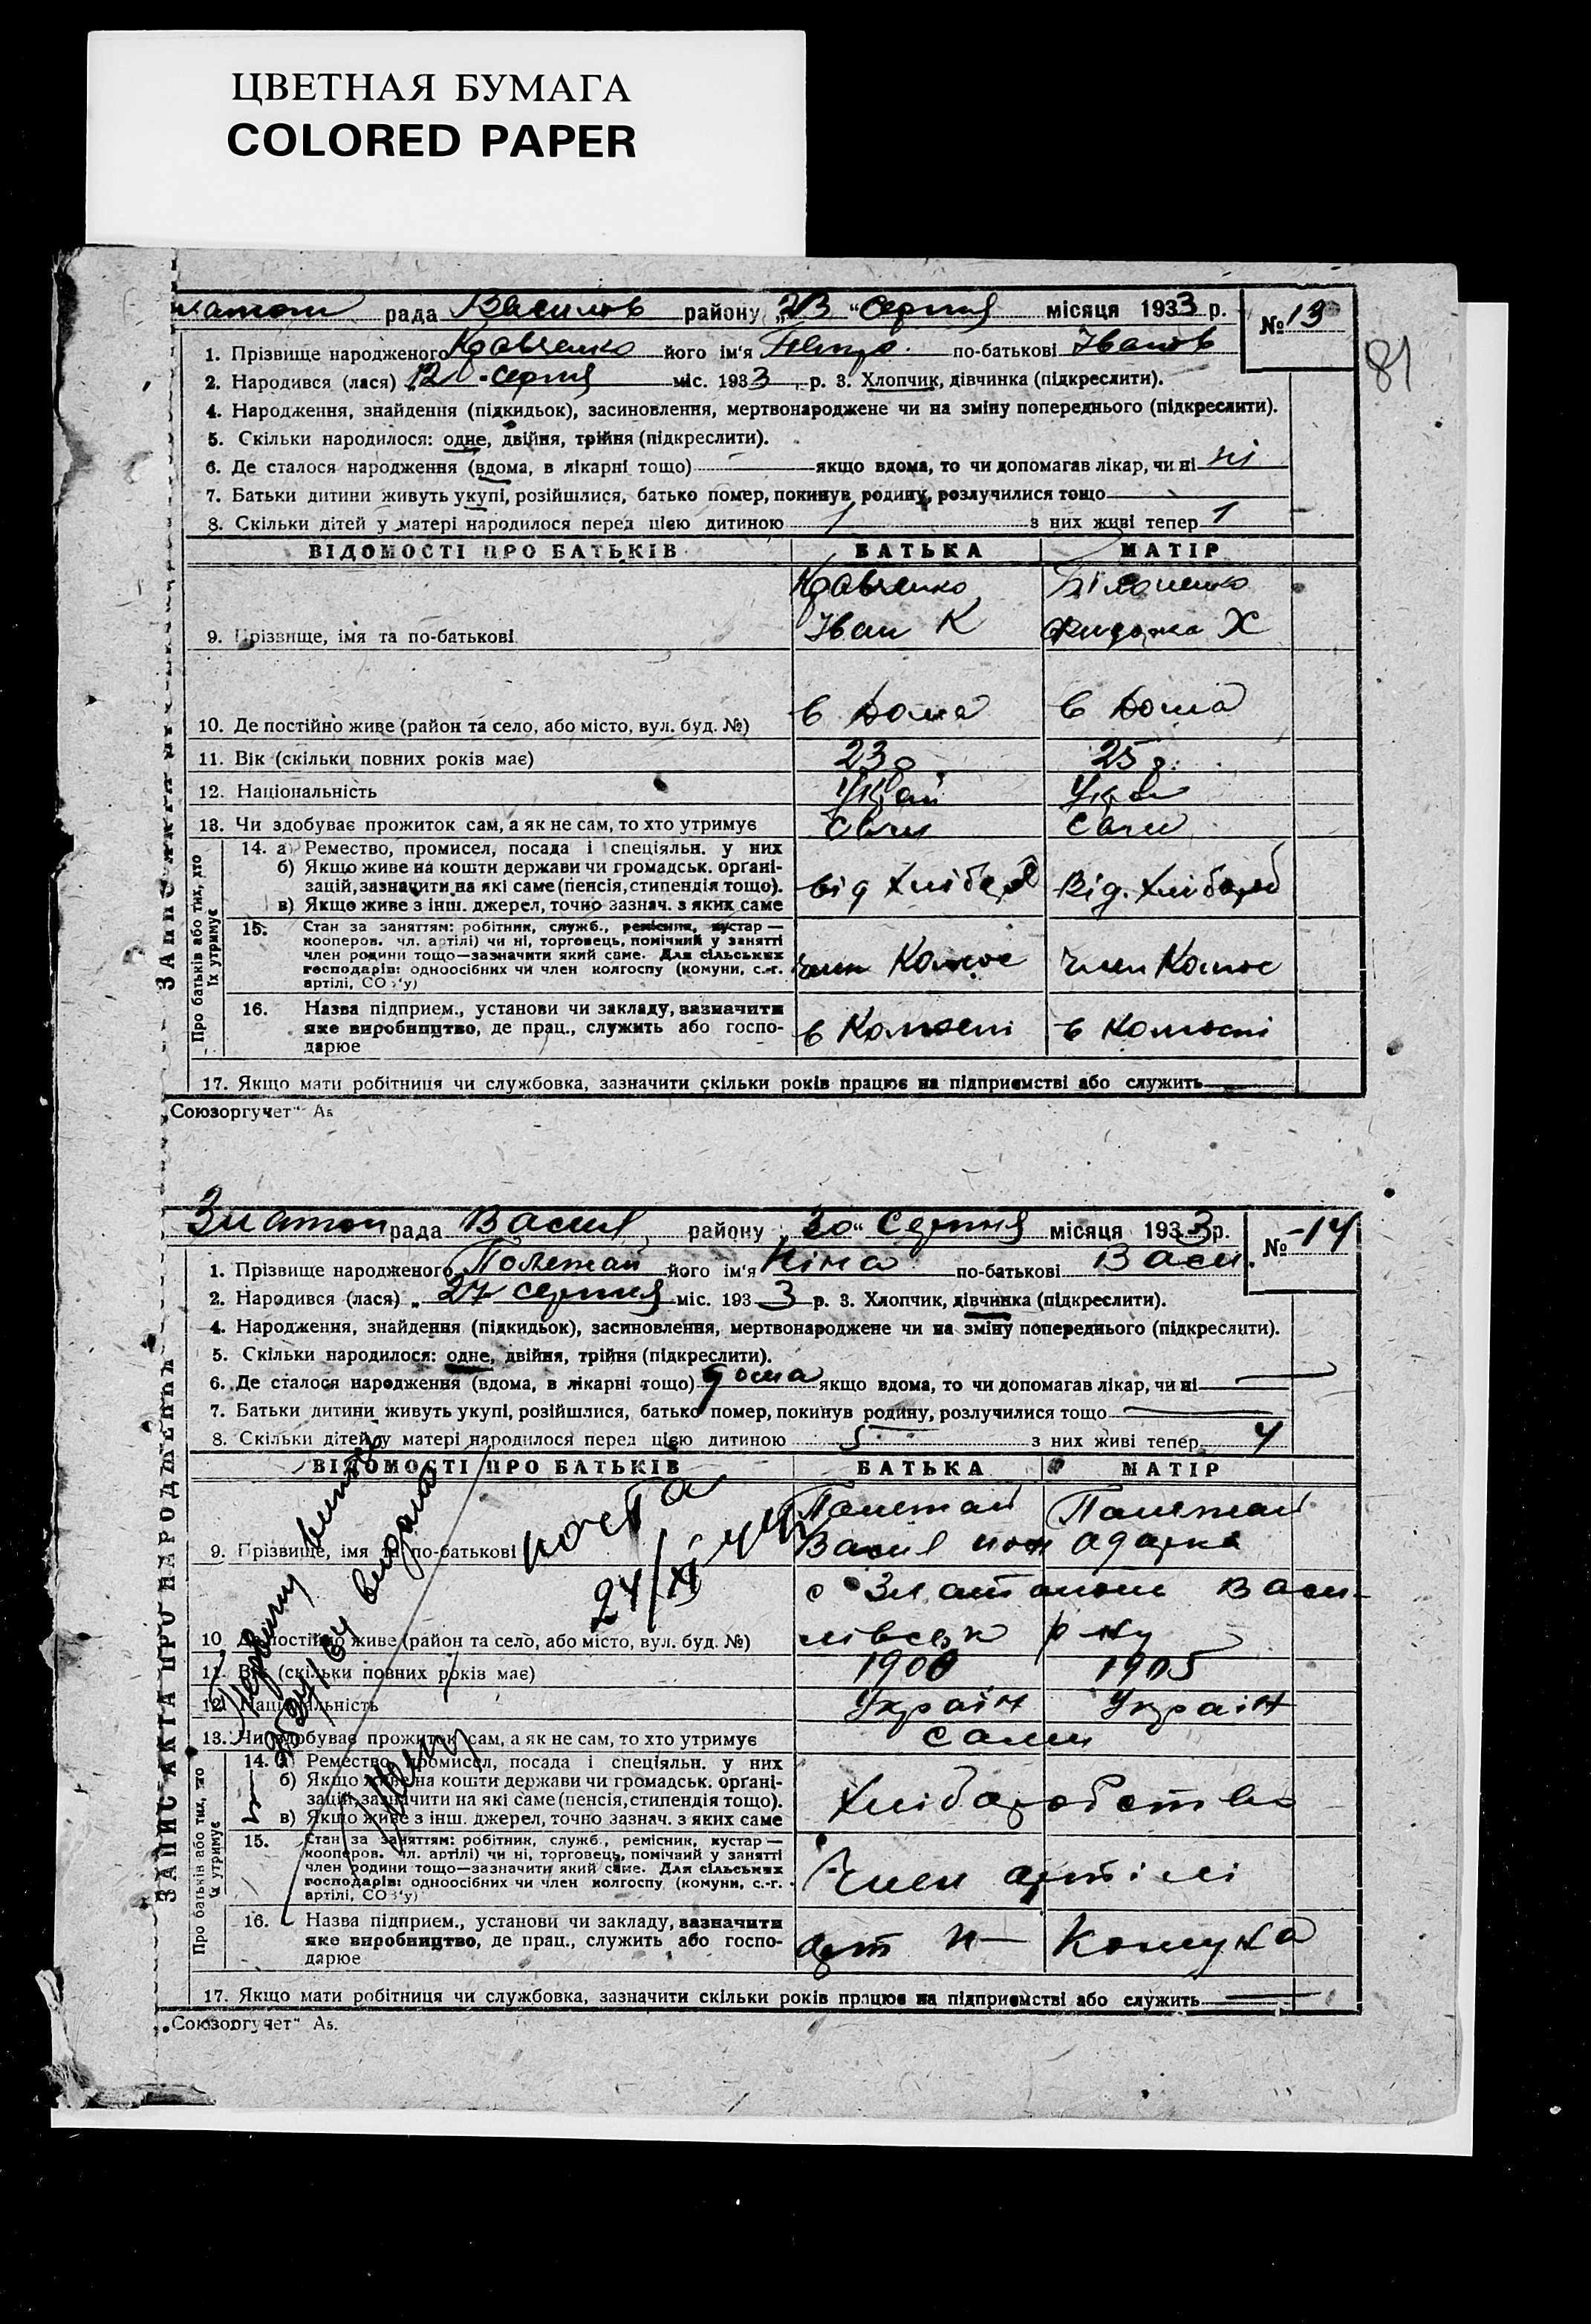 ЦВЕТНАЯ БУМАГА
COLORED PAPER
рада Васил район у „23 “ Серпня місяця 1933 р. № 13
81
1. Прізвище народженого Кравченко його ім'я Петро по-батькові Іванов
2. Народився (лася) 12 серпня міс. 1933 р. 3. Хлопчик, дівчинка (підкреслити).
4. Народження, знайдення (підкидьок), засиновлення, мертвонароджене чи на зміну попереднього (підкреслити).
5. Скільки народилося: одне, двійня, трійня (підкреслити).
6. Де сталося народження (вдома, в лікарні тощо) якщо вдома, то чи допомагав лікар, чи ні ні
7. Батьки дитини живуть укупі, розійшлися, батько помер, покинув родину, розлучилися тощо
8. Скільки дітей у матері народилося перед цією дитиною 1 з них живі тепер 1
ВІДОМОСТІ ПРО БАТЬКІВ БАТЬКА МАТІР
Кравченко
9. Прізвище, імя та по-батькові Іван К Х
10. Де постійно живе (район та село, або місто, вул. буд. №) в
11. Вік (скільки повних років має) 23 25
12. Національність Украй Укра
13. Чи здобуває прожиток сам, а як не сам, то хто утримує
Про батьків або тих, хто їх утримує
14. а) Ремество, промисел, посада і спеціяльн. у них
б) Якщо живе на кошти держави чи громадськ. органі-
зацій, зазначити на які саме (пенсія, стипендія тощо). від хлібороб Від. хлібороб
в) Якщо живе з інш. джерел, точно зазнач. з яких саме
15. Стан за заняттям: робітник, служб., ремісник, кустар —
кооперов. чл. артілі) чи ні, торговець, помічний у занятті
член родини тощо—зазначити який саме. Для сільських
господарів: одноосібних чи член колгоспу (комуни, с.-г. член член
артілі, СОЗ'у)
16. Назва підприєм., установи чи закладу, зазначити
яке виробництво, де прац., служить або госпо- в Колгоспі в Колгоспі
дарює
17. Якщо мати робітниця чи службовка, зазначити скільки років працює на підприємстві або служить
Союзоргучет“ А5
рада Васил району „30“ Серпня місяця 1933 р. № 14
1. Прізвище народженого Полетай його ім'я Ніна по-батькові Васи.
2. Народився (лася) „ 27 серпня міс. 193 3 р. 3. Хлопчик, дівчинка (підкреслити).
4. Народження, знайдення (підкидьок), засиновлення, мертвонароджене чи на зміну попереднього (підкреслити).
5. Скільки народилося: одне, двійня, трійня (підкреслити).
6. Де сталося народження (вдома, в лікарні тощо) дома якщо вдома, то чи допомагав лікар, чи ні
7. Батьки дитини живуть укупі, розійшлися, батько помер, покинув родину, розлучилися тощо
8. Скільки дітей у матері народилося перед цією дитиною 5 з них живі тепер 4
ВІДОМОСТІ ПРО БАТЬКІВ БАТЬКА МАТІР
Полетай Полетай
9. Прізвище, імя та по-батькові Васил Одарка
с Васи-
10. Де постійно живе (район та село, або місто, вул. буд. №) лівськ р-ну
11. Вік (скільки повних років має) 1900 1905
12. Національність Україн Україн
13. Чи здобуває прожиток сам, а як не сам, то хто утримує сами
Про батьків або тих, хто їх утримує
14. а) Ремество, промисел, посада і спеціяльн. у них
б) Якщо живе на кошти держави чи громадськ. органі-
зацій, зазначити на які саме (пенсія, стипендія тощо). Хліборобство
в) Якщо живе з інш. джерел, точно зазнач. з яких саме
15. Стан за заняттям: робітник, служб., ремісник, кустар —
кооперов. чл. артілі) чи ні, торговець, помічний у занятті
член родини тощо—зазначити який саме. Для сільських Член артілі
господарів: одноосібних чи член колгоспу (комуни, с.-г.
артілі, СОЗ'у)
16. Назва підприєм., установи чи закладу, зазначити
яке виробництво, де прац., служить або госпо- арт Комуна
дарює
17. Якщо мати робітниця чи службовка, зазначити скільки років працює на підприємстві або служить
Союзоргучет“ А5.
ЗАПИС АКТА ПРО НАРОДЖЕННЯ